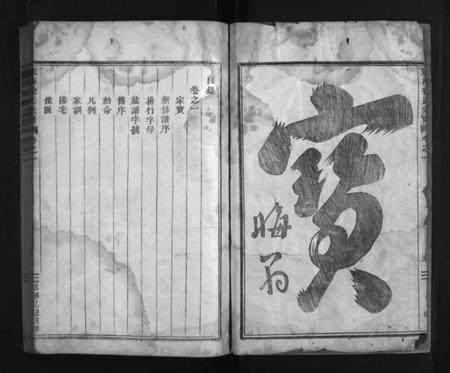 寳
晦翁
目錄
卷之一
家寳
新修譜序
排行字母
蔵譜字號
舊序
勅命
凡例
家訓
陽宅
像圖